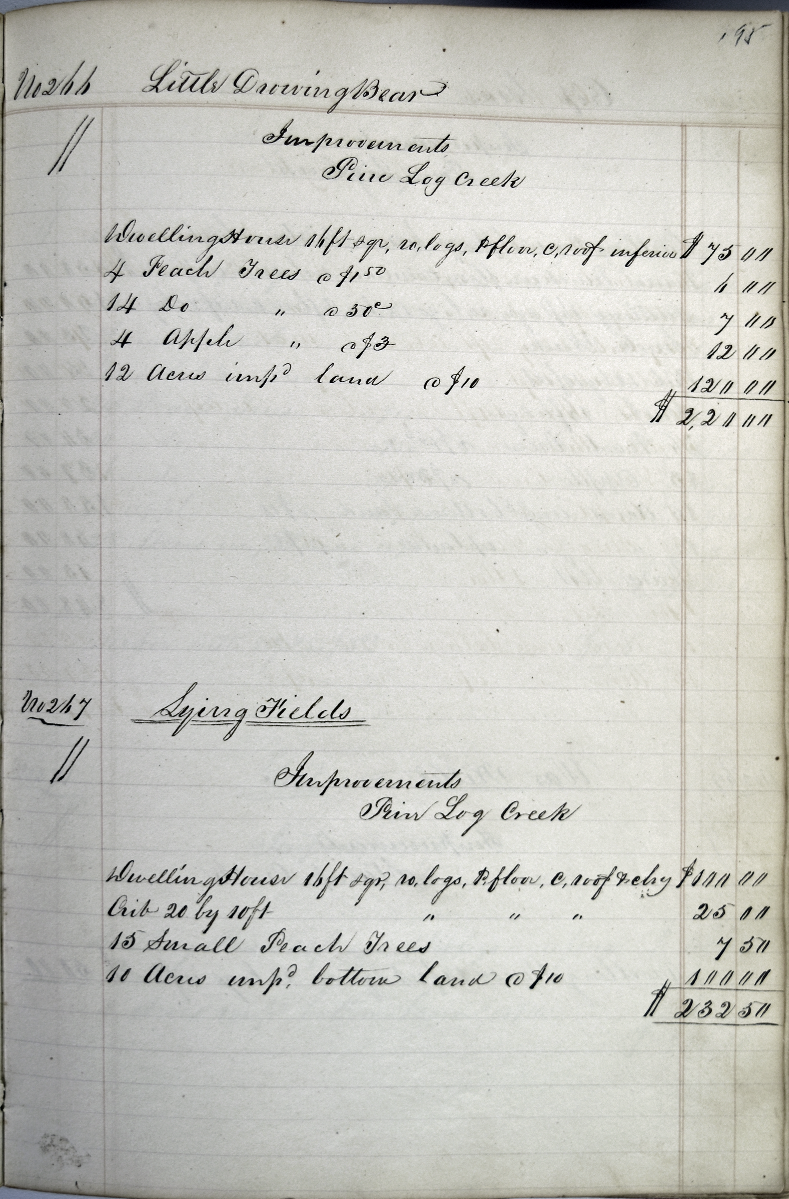 195
No 266 Little Drowing Bear
" Improvements
Pine Log Creek
Dwelling House 16ft sqr, ro, logs, P. floor, C, roof inferior $75 00
4 Peach Trees @ $1 50 6 00
14 Do " @ 50c 7 00
4 Apple " @ $3 12 00
12 Acres impd land @ $10 120 00
$ 2,20 00
No 267 Lying Fields
" Improvements
Pine Log Creek
Dwelling House 16ft sqr, ro, logs, P. floor, C, roof & chy $100 00
Crib 20 by 10ft " " " 25 00
15 Small Peach Trees 7 50
10 Acres impd. bottom land @ $10 100 00
$ 232 50